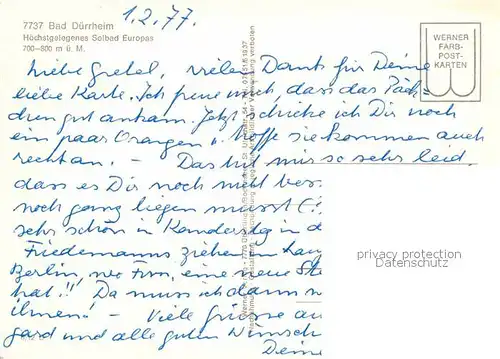 7737 Bad Dürrheim
Höchstgelegenes Solbad Europas
700-800 m ü. M.
1.2.77.
WERNER
FARB-
POST-
KARTEN
Liebe Gretel, vielen Dank für Deine
liebe Karte. Ich freue mich, dass das Päck-
chen gut ankam. Jetzt schicke ich Dir noch
ein paar Orangen u. hoffe sie kommen auch
recht an. – Das tut mir so sehr leid,
dass es Dir noch nicht bes
noch ganz liegen musst
sehr schön in
Friedemanns ziehen
Berlin, wo Firm, eine neue
hat!! Da muss ich dann
– Viele Grüsse
gard und alle guten Wünsch
Deine
privacy protection
Datenschutz